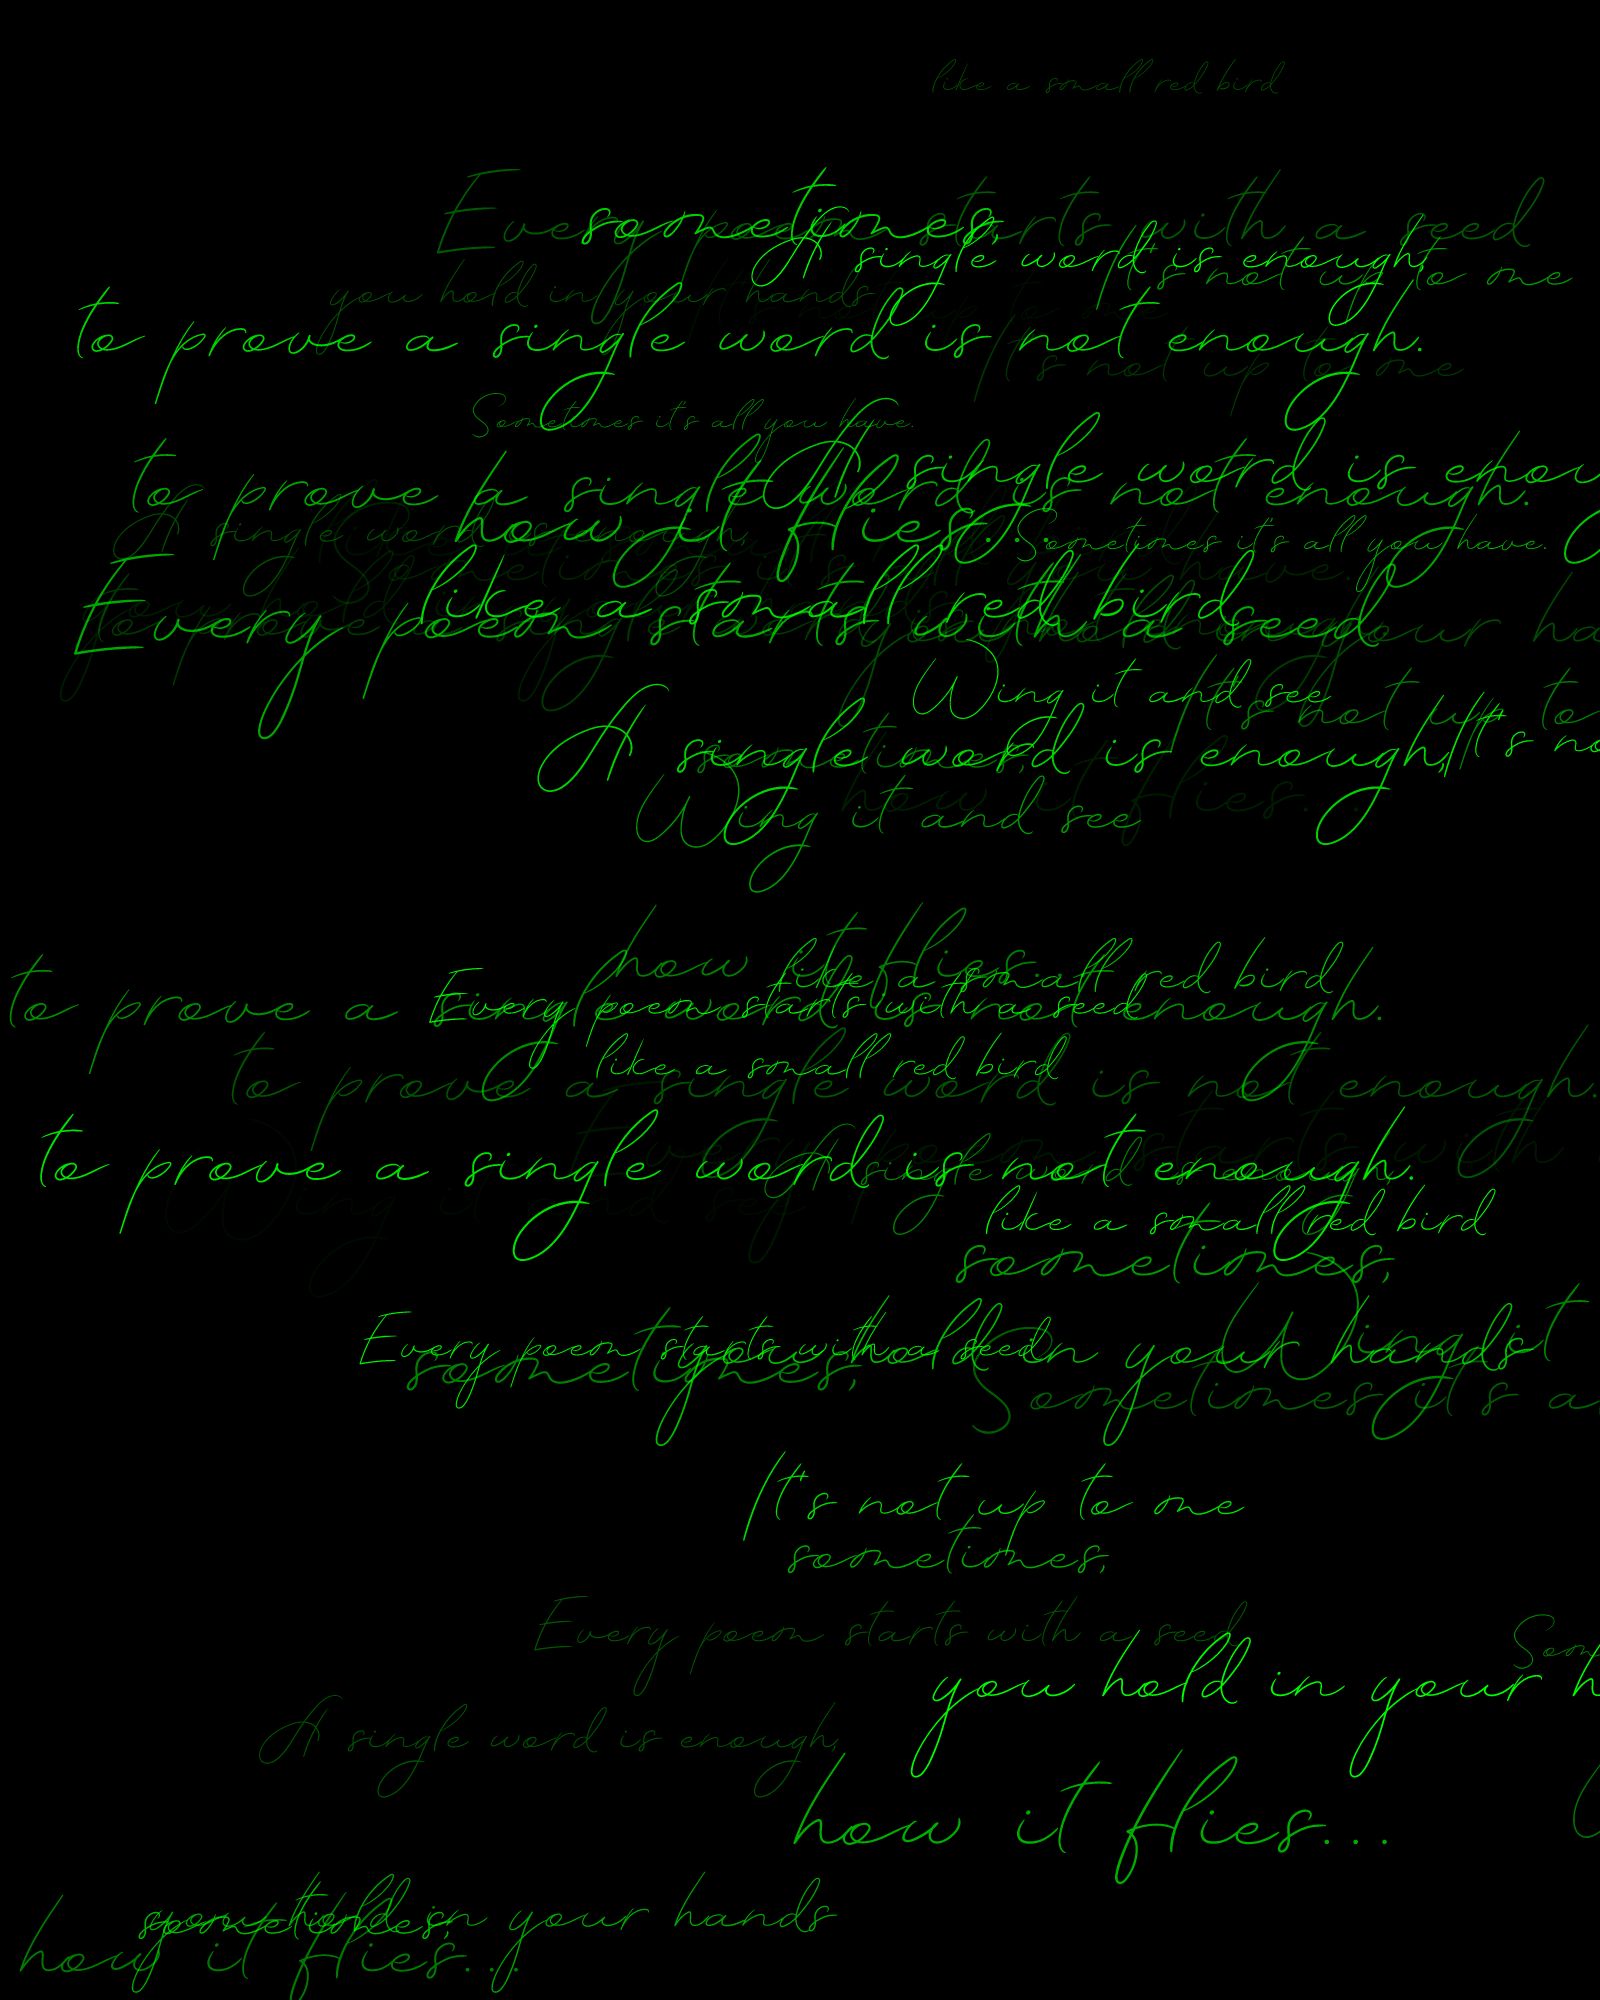 like a small red bird
Every poem starts with a seed
sometimes,
A single word is enough,
It's not up to me
you hold in your hands
It's not up to me
to prove a single word is not enough.
It's not up to me
Sometimes it's all you have.
A single word is enou
to prove a single word is not enough.
how it flies...
A single word is enough,
Sometimes it's all you have.
Sometimes it's all you have.
like a small red bird
Every poem starts with a seed
your ha
Wing it and see
It's not up to
It's no
A single word is enough,
sometimes,
how it flies.
Wing it and see
how it flies...
like a small red bird
to prove a single word is not enough.
Every poem starts with a seed
like a small red bird
to prove a single word is not enough.
Every poem starts with
to prove a single word is not enough.
A single word is enough,
Wing it and see
like a small red bird
sometimes,
Wing it
Every poem starts with a seed
you hold in your hands
sometimes,
Sometimes it's a
It's not up to me
sometimes,
Every poem starts with a seed
Som
you hold in your h
A single word is enough,
how it flies...
you hold in your hands
sometimes,
how it flies...